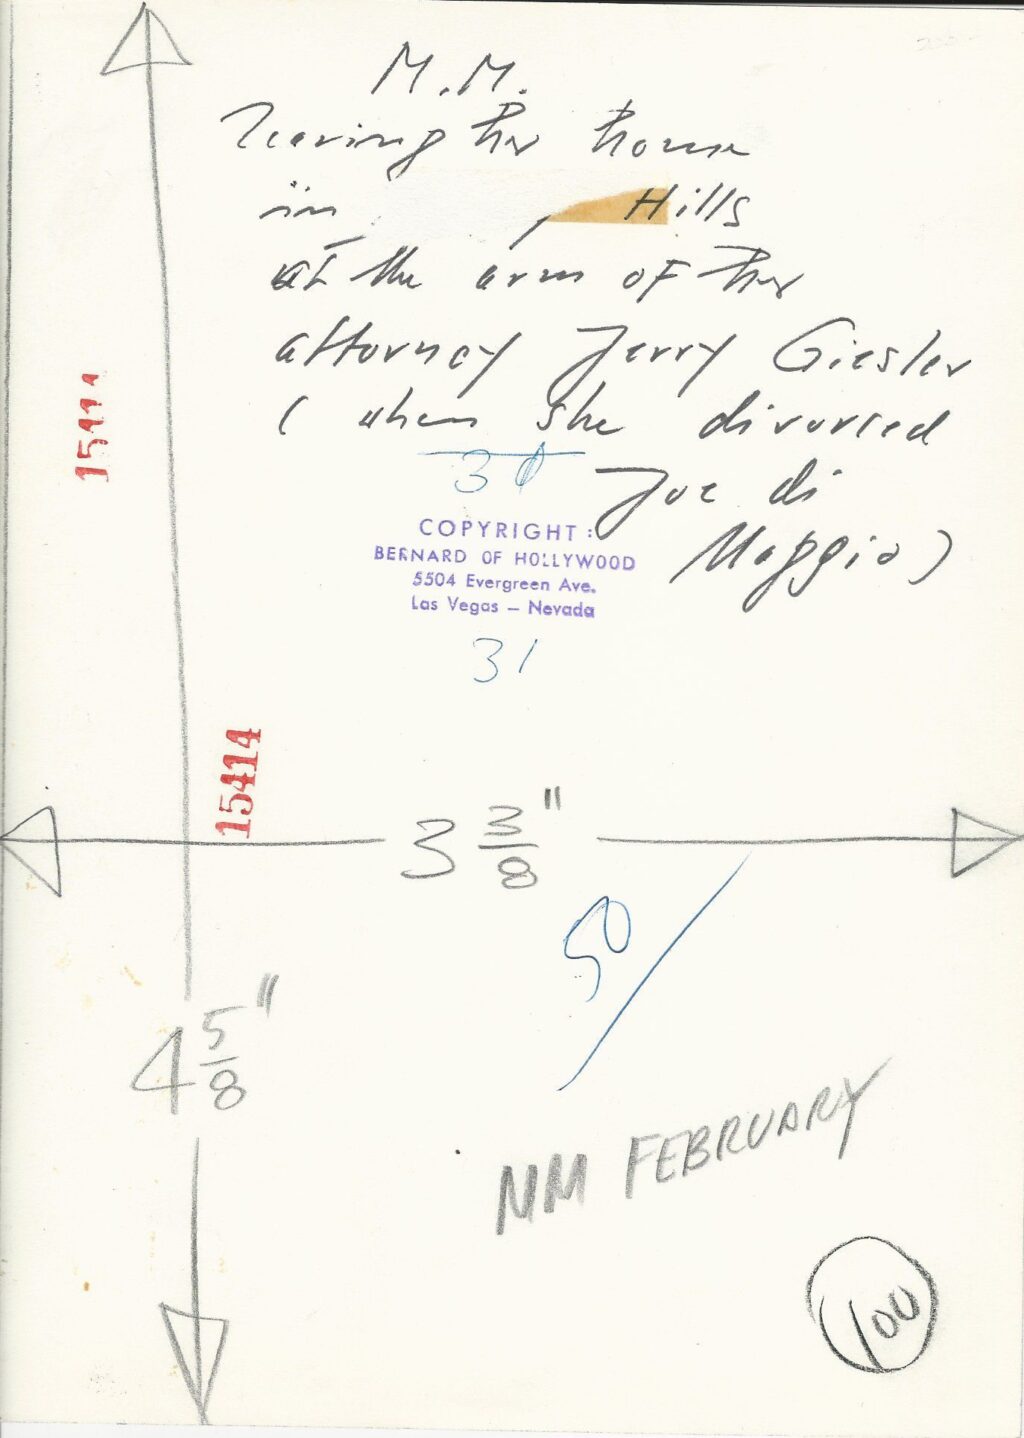 M.M.
leaving her house
in , Hills
at the arm of her
attorney Jerry Giesler
( when she divorced
Joe di
Maggio)
COPYRIGHT:
BERNARD OF HOLLYWOOD
5504 Evergreen Ave.
Las Vegas — Nevada
31
15414
15414
3 3/8"
50
4 5/8"
NM FEBRUARY
100